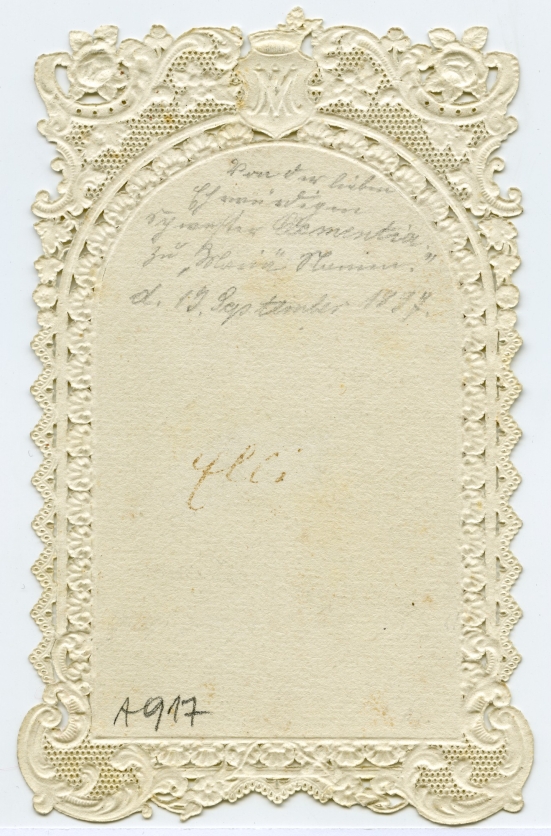 Von der lieben
Ehrwürdigen
Schwester Clementia.
zu „Mariä" Namen."
d. 12. September 1897.
A 917